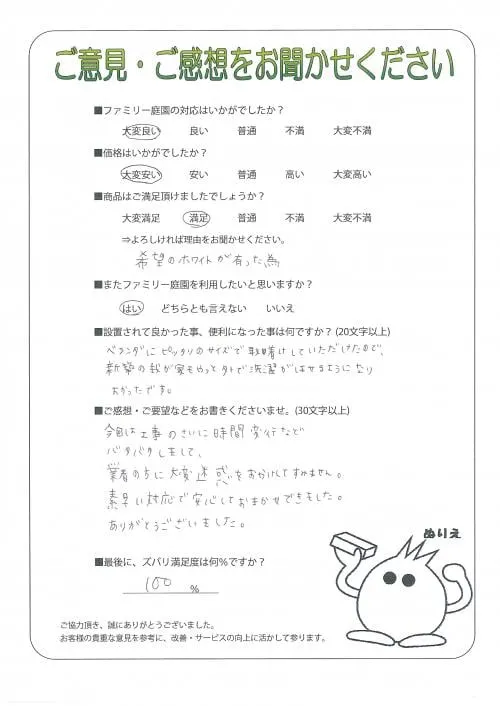 ご意見・ご感想をお聞かせください
■ファミリー庭園の対応はいかがでしたか？
大変良い 良い 普通 不満 大変不満
■価格はいかがでしたか？
大変安い 安い 普通 高い 大変高い
■商品はご満足頂けましたでしょうか？
大変満足 満足 普通 不満 大変不満
⇒よろしければ理由をお聞かせください。
希望のホワイトが有った為
■またファミリー庭園を利用したいと思いますか？
はい どちらとも言えない いいえ
■設置されて良かった事、便利になった事は何ですか？(20文字以上)
ベランダにピッタリのサイズで取着けしていただけたので、
新築の我が家もやっと外で洗濯がほせるようになり
よかったです。
■ご感想・ご要望などをお書きくださいませ。(30文字以上)
今回は工事のさいに時間変行など
バタバタしまして、
業者のちに大変迷惑をおかけしてすみません。
素早い対応で安心しておまかせできました。
ありがとうございました。
■最後に、ズバリ満足度は何％ですか？
100 ％
ぬりえ
ご協力頂き、誠にありがとうございました。
お客様の貴重な意見を参考に、改善・サービスの向上に活かして参ります。